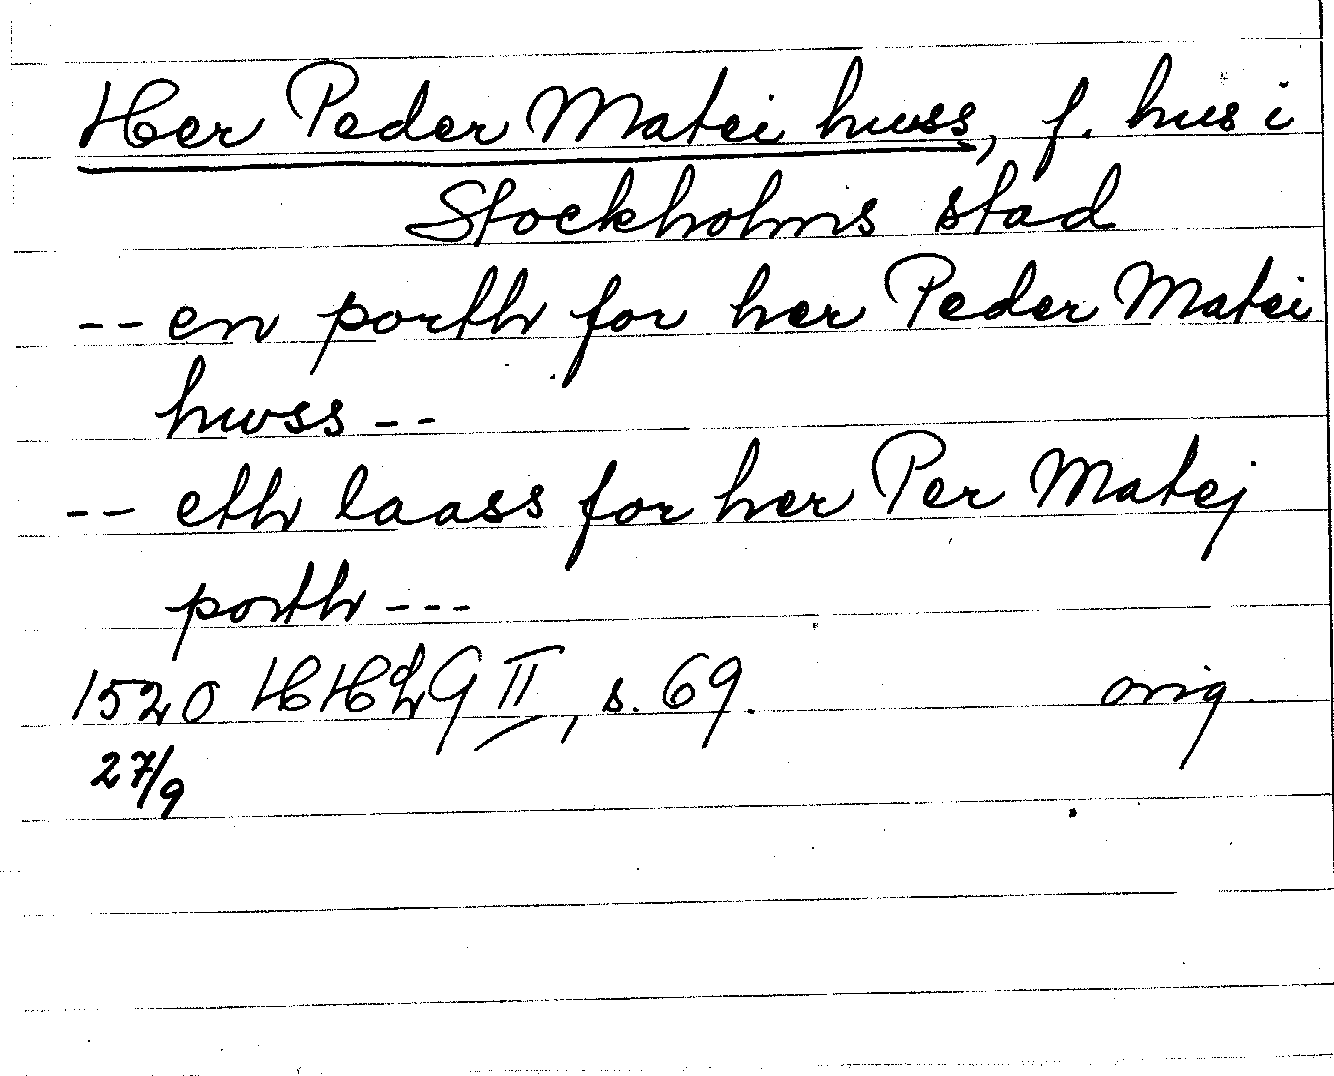 Her Peder Matei hwss, f. hus i
Stockholms stad
-- en porth for her Peder Matei
hwss --
-- eth laass for her Per Matej
porth ---
1520 HHLG II, s. 69. orig.
27/9